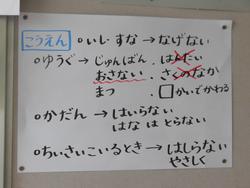 こうえん
○いし・すな→なげない
○ゆうぐ→じゅんばん
おさない
まつ . □かいでかわる
○かだん→はいらない
はなはとらない
○ちいさいこいるとき→はしらない
やさしく